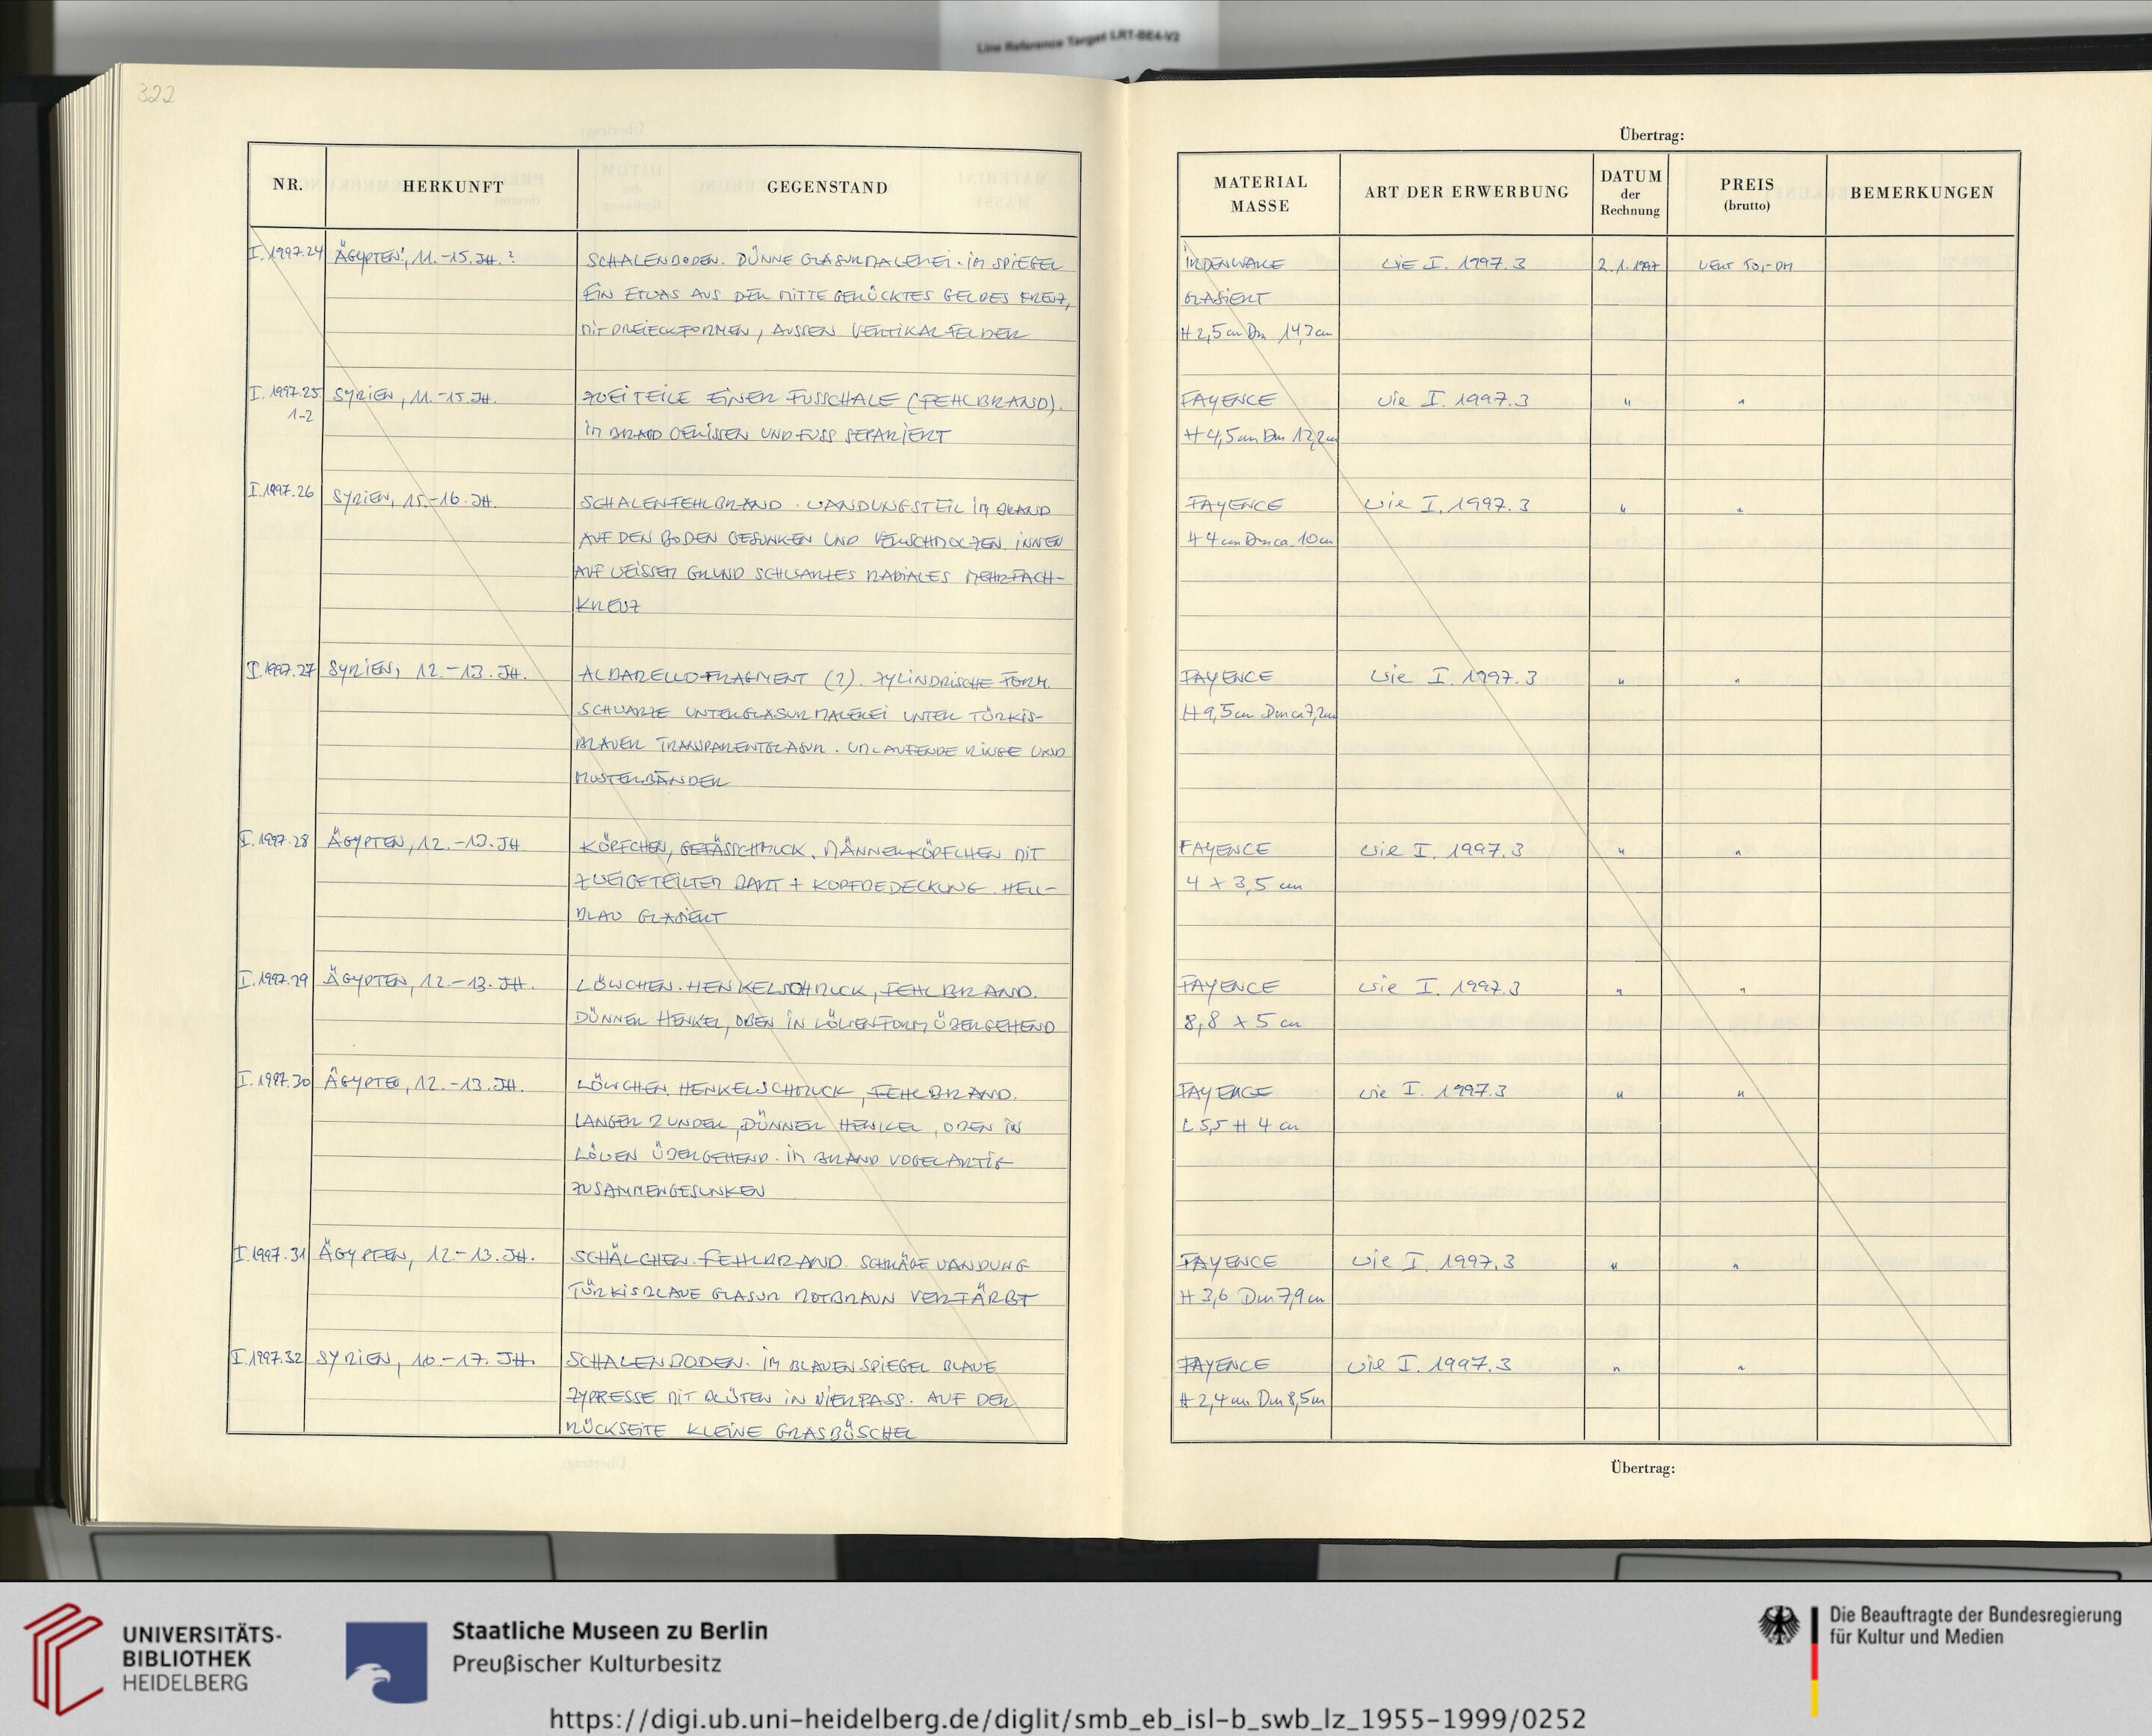 Line Reference Target LRT-BE4-V2
322
NR.
HERKUNFT
GEGENSTAND
I.1997.24 ÄGYPTEN, 11.-15. JH. ?
SCHALENBODEN. DÜNNE GLASURMALEREI. IM SPIEGEL
EIN ETWAS AUS DER MITTE GERÜCKTES GELBES KREUZ,
MIT DREIECKFORMEN, AUSSEN VERTIKALFELDER
I.1997.25 SYRIEN, 11.-15. JH.
1-2
ZWEI TEILE EINER FUSSCHALE (FEHLBRAND).
IM BRAND GERISSEN UND FUSS SEPARIERT
I.1997.26 SYRIEN, 15.-16. JH.
SCHALENFEHLBRAND. WANDUNGSTEIL IM BRAND
AUF DEN BODEN GESUNKEN UND VERSCHMOLZEN. INNEN
AUF WEISSEM GRUND SCHWARZES RADIALES MEHRFACH-
KREUZ
I.1997.27 SYRIEN, 12.-13. JH.
ALBARELLOFRAGMENT (?). ZYLINDRISCHE FORM.
SCHWARZE UNTERGLASURMALEREI UNTER TÜRKIS-
BLAUER TRANSPARENTGLASUR. UMLAUFENDE RINGE UND
MUSTERBÄNDER
I.1997.28 ÄGYPTEN, 12.-13. JH
KÖPFCHEN, GEFÄSSCHMUCK. MÄNNERKÖPFCHEN MIT
ZWEIGETEILTEM BART + KOPFBEDECKUNG. HELL-
BLAU GLASIERT
I.1997.29 ÄGYPTEN, 12.-13. JH.
LÖWCHEN. HENKELSCHMUCK, FEHLBRAND.
DÜNNER HENKEL, OBEN IN LÖWENFORM ÜBERGEHEND
I.1997.30 ÄGYPTEN, 12.-13. JH.
LÖWCHEN. HENKELSCHMUCK, FEHLBRAND.
LANGER RUNDER, DÜNNER HENKEL, OBEN IN
LÖWEN ÜBERGEHEND. IM BRAND VOGELARTIG
ZUSAMMENGESUNKEN
I.1997.31 ÄGYPTEN, 12-13. JH.
SCHÄLCHEN. FEHLBRAND. SCHRÄGE WANDUNG
TÜRKISBLAUE GLASUR ROTBRAUN VERFÄRBT
I.1997.32 SYRIEN, 16.-17. JH.
SCHALENBODEN. IM BLAUEN SPIEGEL BLAUE
ZYPRESSE MIT BLÜTEN IN VIERPASS. AUF DER
RÜCKSEITE KLEINE GRASBÜSCHEL
Übertrag:
MATERIAL
MASSE
ART DER ERWERBUNG
DATUM
der
Rechnung
PREIS
(brutto)
BEMERKUNGEN
IRDENWARE wie I. 1997.3 2.1.1997 WERT 50,- DM
GLASIERT
H 2,5 cm Dm 14,3 cm
FAYENCE wie I. 1997.3 " "
H 4,5 cm Dm 12,2 cm
FAYENCE wie I. 1997.3 " "
H 4 cm Dm ca. 10 cm
FAYENCE wie I. 1997.3 " "
H 9,5 cm Dm ca 7,2 cm
FAYENCE wie I. 1997.3 " "
4 x 3,5 cm
FAYENCE wie I. 1997.3 " "
8,8 x 5 cm
FAYENCE wie I. 1997.3 " "
L 5,5 H 4 cm
FAYENCE wie I. 1997.3 " "
H 3,6 Dm 7,9 cm
FAYENCE wie I. 1997.3 " "
H 2,4 cm Dm 8,5 cm
Übertrag:
UNIVERSITÄTS-
BIBLIOTHEK
HEIDELBERG
Staatliche Museen zu Berlin
Preußischer Kulturbesitz
Die Beauftragte der Bundesregierung
für Kultur und Medien
https://digi.ub.uni-heidelberg.de/diglit/smb_eb_isl-b_swb_lz_1955-1999/0252